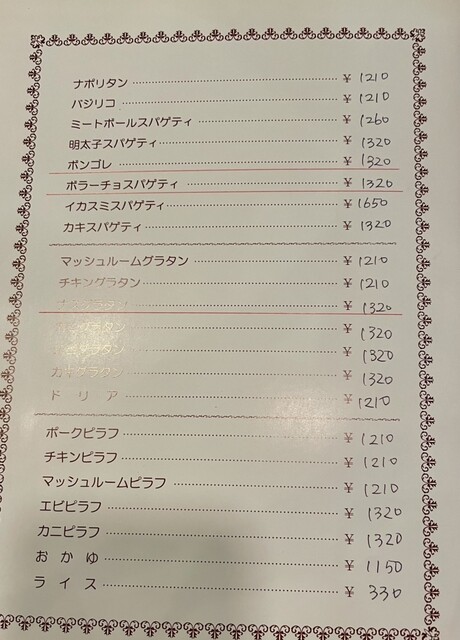 ナポリタン ¥ 1210
バジリコ ¥ 1210
ミートボールスパゲティ ¥ 1260
明太子スパゲティ ¥ 1320
ボンゴレ ¥ 1320
ボラーチョスパゲティ ¥ 1320
イカスミスパゲティ ¥ 1650
カキスパゲティ ¥ 1320
マッシュルームグラタン ¥ 1210
チキングラタン ¥ 1210
グラタン ¥ 1320
グラタン ¥ 1320
グラタン ¥ 1320
グラタン ¥ 1320
ドリア ¥ 1210
ポークピラフ ¥ 1210
チキンピラフ ¥ 1210
マッシュルームピラフ ¥ 1210
エビピラフ ¥ 1320
カニピラフ ¥ 1320
おかゆ ¥ 1150
ライス ¥ 330